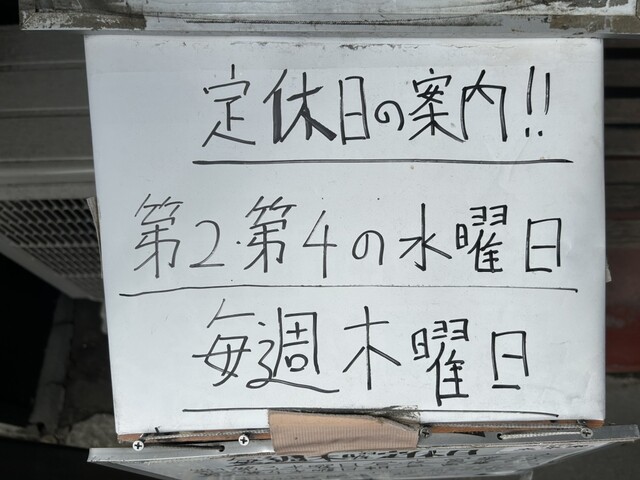 定休日の案内!!
第2.第4の水曜日
毎週木曜日